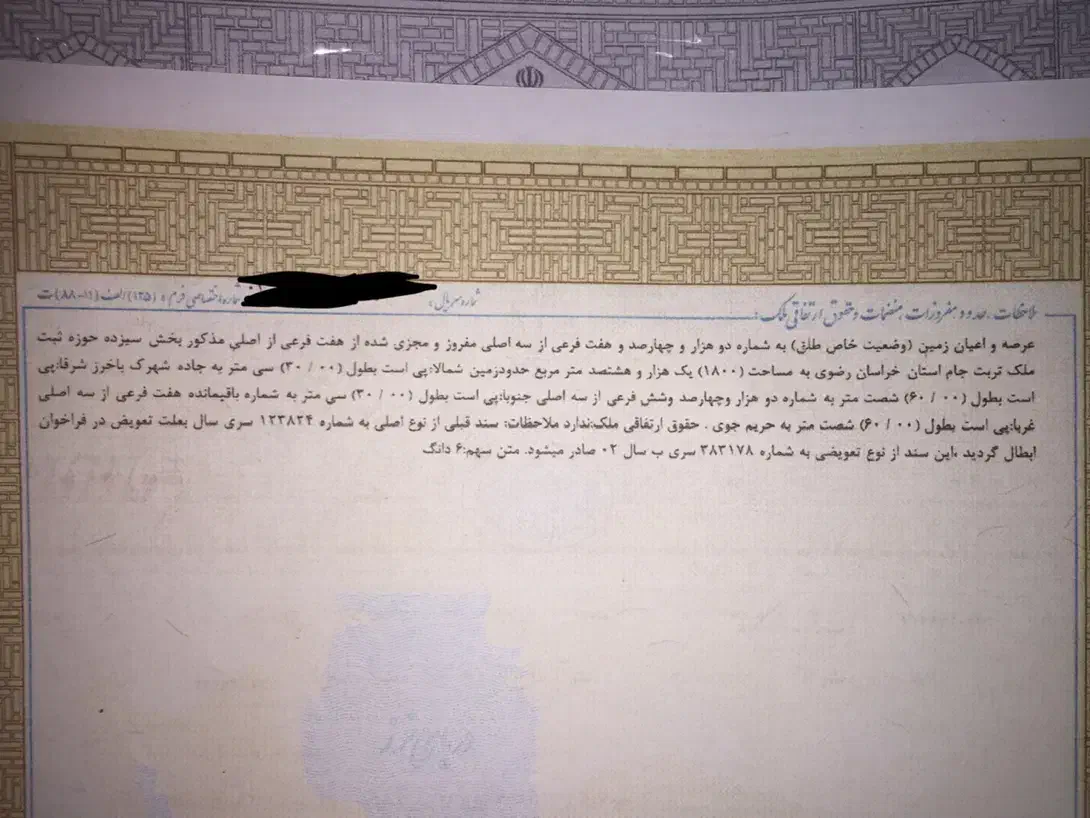 ملاحظات ،حدود ،مفروزات ،منضمات وحقوق ارتفاقی ملک: شماره سریال: شماره اختصاصی فرم:
عرصه و اعیان زمین (وضعیت خاص طلق) به شماره دو هزار و چهارصد و هفت فرعی از سه اصلی مفروز و مجزی شده از هفت فرعی از اصلی مذکور بخش سیزده حوزه ثبت
ملک تربت جام استان خراسان رضوی به مساحت (۱۸۰۰) یک هزار و هشتصد متر مربع حدودزمین شمالا:پی است بطول (۰۰ / ۳۰) سی متر به جاده شهرک باخرز شرقا:پی
است بطول (۰۰ / ۶۰) شصت متر به شماره دو هزار وچهارصد وشش فرعی از سه اصلی جنوبا:پی است بطول (۰۰ / ۳۰) سی متر به شماره باقیمانده هفت فرعی از سه اصلی
غربا:پی است بطول (۰۰ / ۶۰) شصت متر به حریم جوی . حقوق ارتفاقی ملک:ندارد ملاحظات: سند قبلی از نوع اصلی به شماره ۱۲۳۸۲۴ سری سال بعلت تعویض در فراخوان
ابطال گردید ،این سند از نوع تعویضی به شماره ۳۸۳۱۷۸ سری ب سال ۰۲ صادر میشود. متن سهم:۶ دانگ